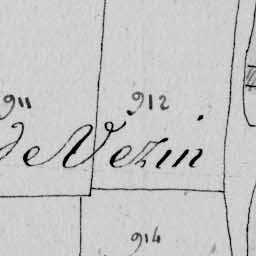 911 912
de Vezin
914